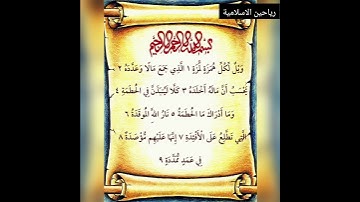 رياحين الاسلامية
بسم الله الرحمن الرحيم
وَيْلٌ لِّكُلِّ هُمَزَةٍ لُّمَزَةٍ ١ الَّذِي جَمَعَ مَالًا وَعَدَّدَهُ ٢
يَحْسَبُ أَنَّ مَالَهُ أَخْلَدَهُ ٣ كَلَّا لَيُنبَذَنَّ فِي الْحُطَمَةِ ٤
وَمَا أَدْرَاكَ مَا الْحُطَمَةُ ٥ نَارُ اللَّهِ الْمُوقَدَةُ ٦
الَّتِي تَطَّلِعُ عَلَى الْأَفْئِدَةِ ٧ إِنَّهَا عَلَيْهِم مُّؤْصَدَةٌ ٨
فِي عَمَدٍ مُّمَدَّدَةٍ ٩